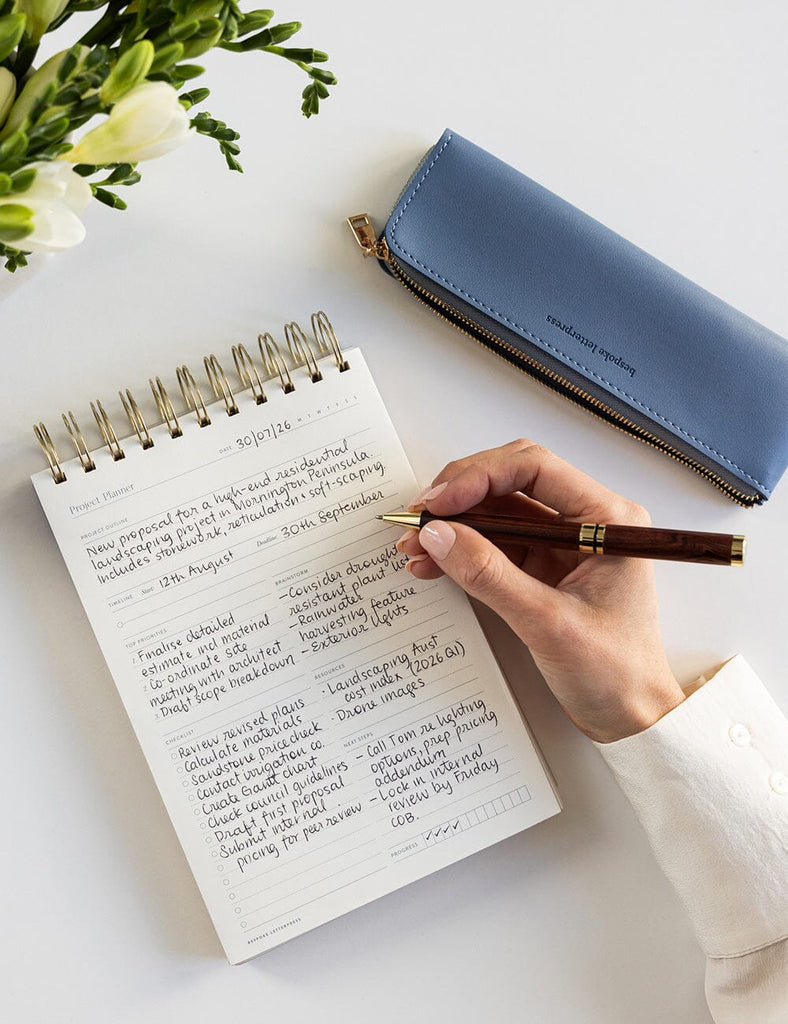 DATE 30/07/26 M T W T F S S
Project Planner
PROJECT OUTLINE
New proposal for a high-end residential
landscaping project in Mornington Peninsula.
Includes stonework, reticulation + soft-scaping.
TIMELINE Start 12th August Deadline 30th September
TOP PRIORITIES
1. Finalise detailed
estimate and material
2. Co-ordinate site
meeting with architect
3. Draft scope breakdown
BRAINSTORM
- Consider drought
resistant plant list
- Rainwater
harvesting feature
- Exterior lights
RESOURCES
- Landscaping Aust
cost index (2026 Q1)
- Drone images
CHECKLIST
Review revised plans
Calculate materials
Sandstone price check
Contact irrigation co.
Create Gantt chart
Check council guidelines
Draft first proposal
Submit internal
pricing for peer review
NEXT STEPS
- Call Tom re lighting
options, prep pricing
addendum
- Lock in internal
review by Friday
COB.
PROGRESS ✓ ✓ ✓ ✓
BESPOKE LETTERPRESS
bespoke letterpress